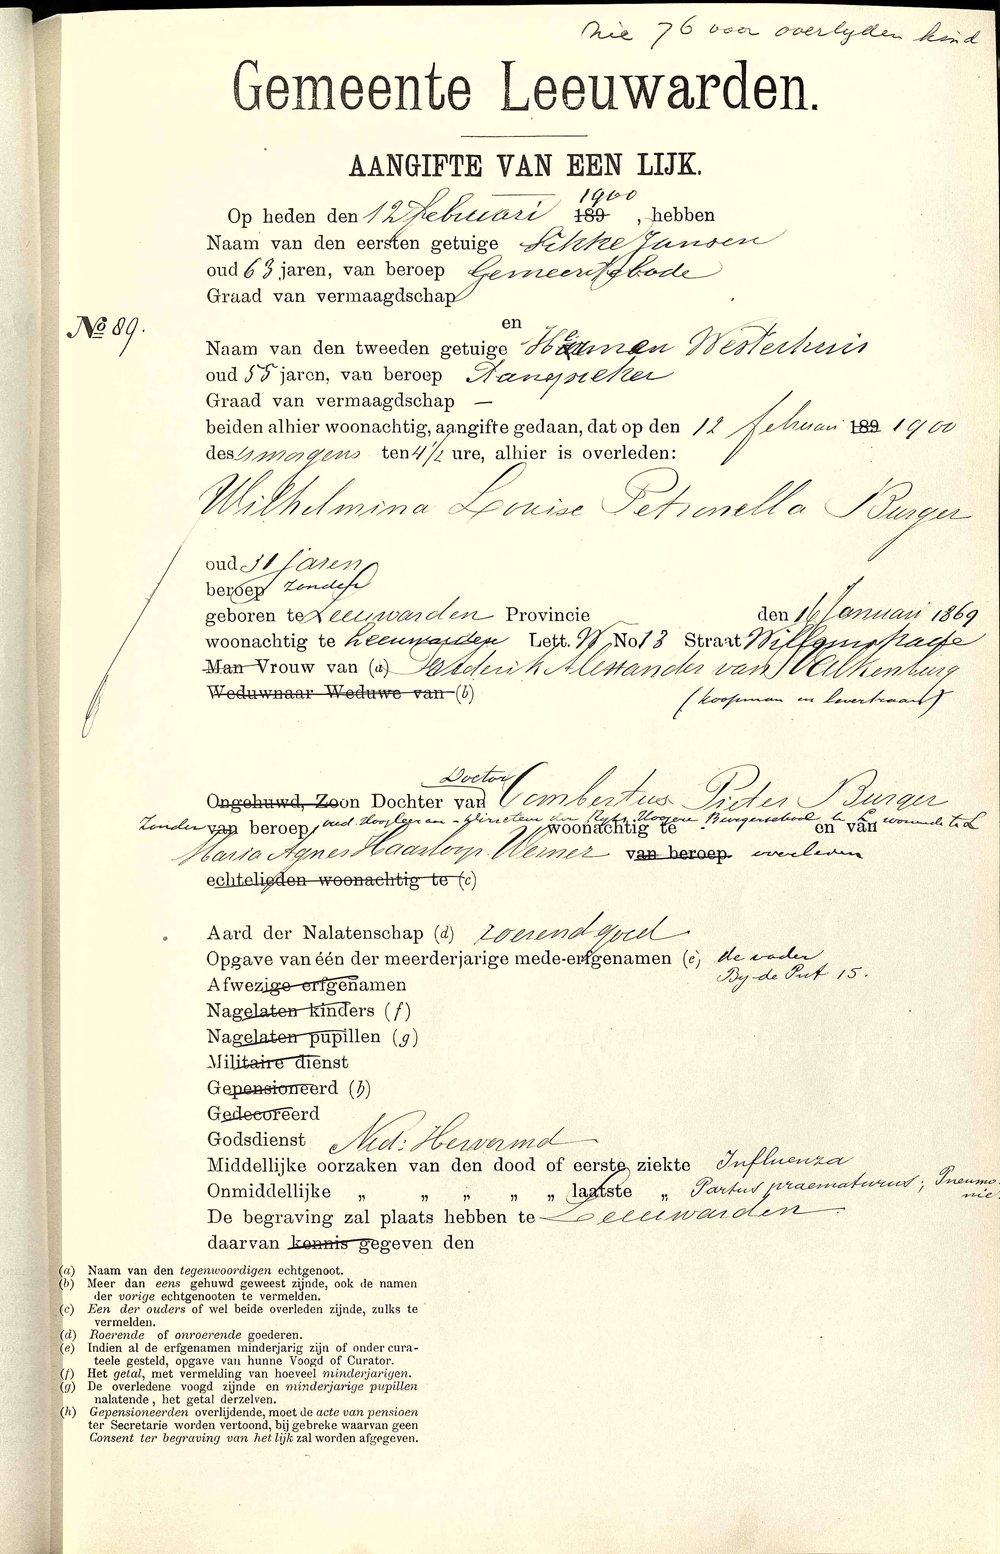 Nie 76 voor overlyden kind
Gemeente Leeuwarden.
AANGIFTE VAN EEN LIJK.
1900
Op heden den 12 februari 189 , hebben
Naam van den eersten getuige Sikke Jansen
oud 63 jaren, van beroep Gemeentebode
Graad van vermaagdschap
No 89.
en
Naam van den tweeden getuige Herman Westerhuis
oud 55 jaren, van beroep Aanspreker
Graad van vermaagdschap —
beiden alhier woonachtig, aangifte gedaan, dat op den 12 februari 189 1900
des smorgens ten 4½ ure, alhier is overleden:
Wilhelmina Louise Petronella Burger
oud 31 jaren
beroep zonder
geboren te Leeuwarden Provincie den 16 Januari 1869
woonachtig te Leeuwarden Lett. W No 13 Straat Willemskade
Man Vrouw van (a) Frederik Alexander van Valkenburg
Weduwnaar Weduwe van (b) (koopman in levertraan)
Doctor
Ongehuwd, Zoon Dochter van Combertus Pieter Burger
Zonder van beroep, oud. Hoogleeraar-Directeur der Ryks Hoogere Burgerschool te L woonachtig te en van wonende te L
Maria Agnes Haarloop Werner van beroep overleden
echtelieden woonachtig te (c)
Aard der Nalatenschap (d) roerend goed
Opgave van één der meerderjarige mede-erfgenamen (e) de vader
By de Put 15.
Afwezige erfgenamen
Nagelaten kinders (f)
Nagelaten pupillen (g)
Militaire dienst
Gepensioneerd (h)
Gedecoreerd
Godsdienst Ned: Hervormd
Middellijke oorzaken van den dood of eerste ziekte Influenza
Onmiddellijke „ „ „ „ „ laatste „ Partus praematurus; Pneumonie
De begraving zal plaats hebben te Leeuwarden
daarvan kennis gegeven den
(a) Naam van den tegenwoordigen echtgenoot.
(b) Meer dan eens gehuwd geweest zijnde, ook de namen
der vorige echtgenooten te vermelden.
(c) Een der ouders of wel beide overleden zijnde, zulks te
vermelden.
(d) Roerende of onroerende goederen.
(e) Indien al de erfgenamen minderjarig zijn of onder cura-
teele gesteld, opgave van hunne Voogd of Curator.
(f) Het getal, met vermelding van hoeveel minderjarigen.
(g) De overledene voogd zijnde en minderjarige pupillen
nalatende, het getal derzelven.
(h) Gepensioneerden overlijdende, moet de acte van pensioen
ter Secretarie worden vertoond, bij gebreke waarvan geen
Consent ter begraving van het lijk zal worden afgegeven.